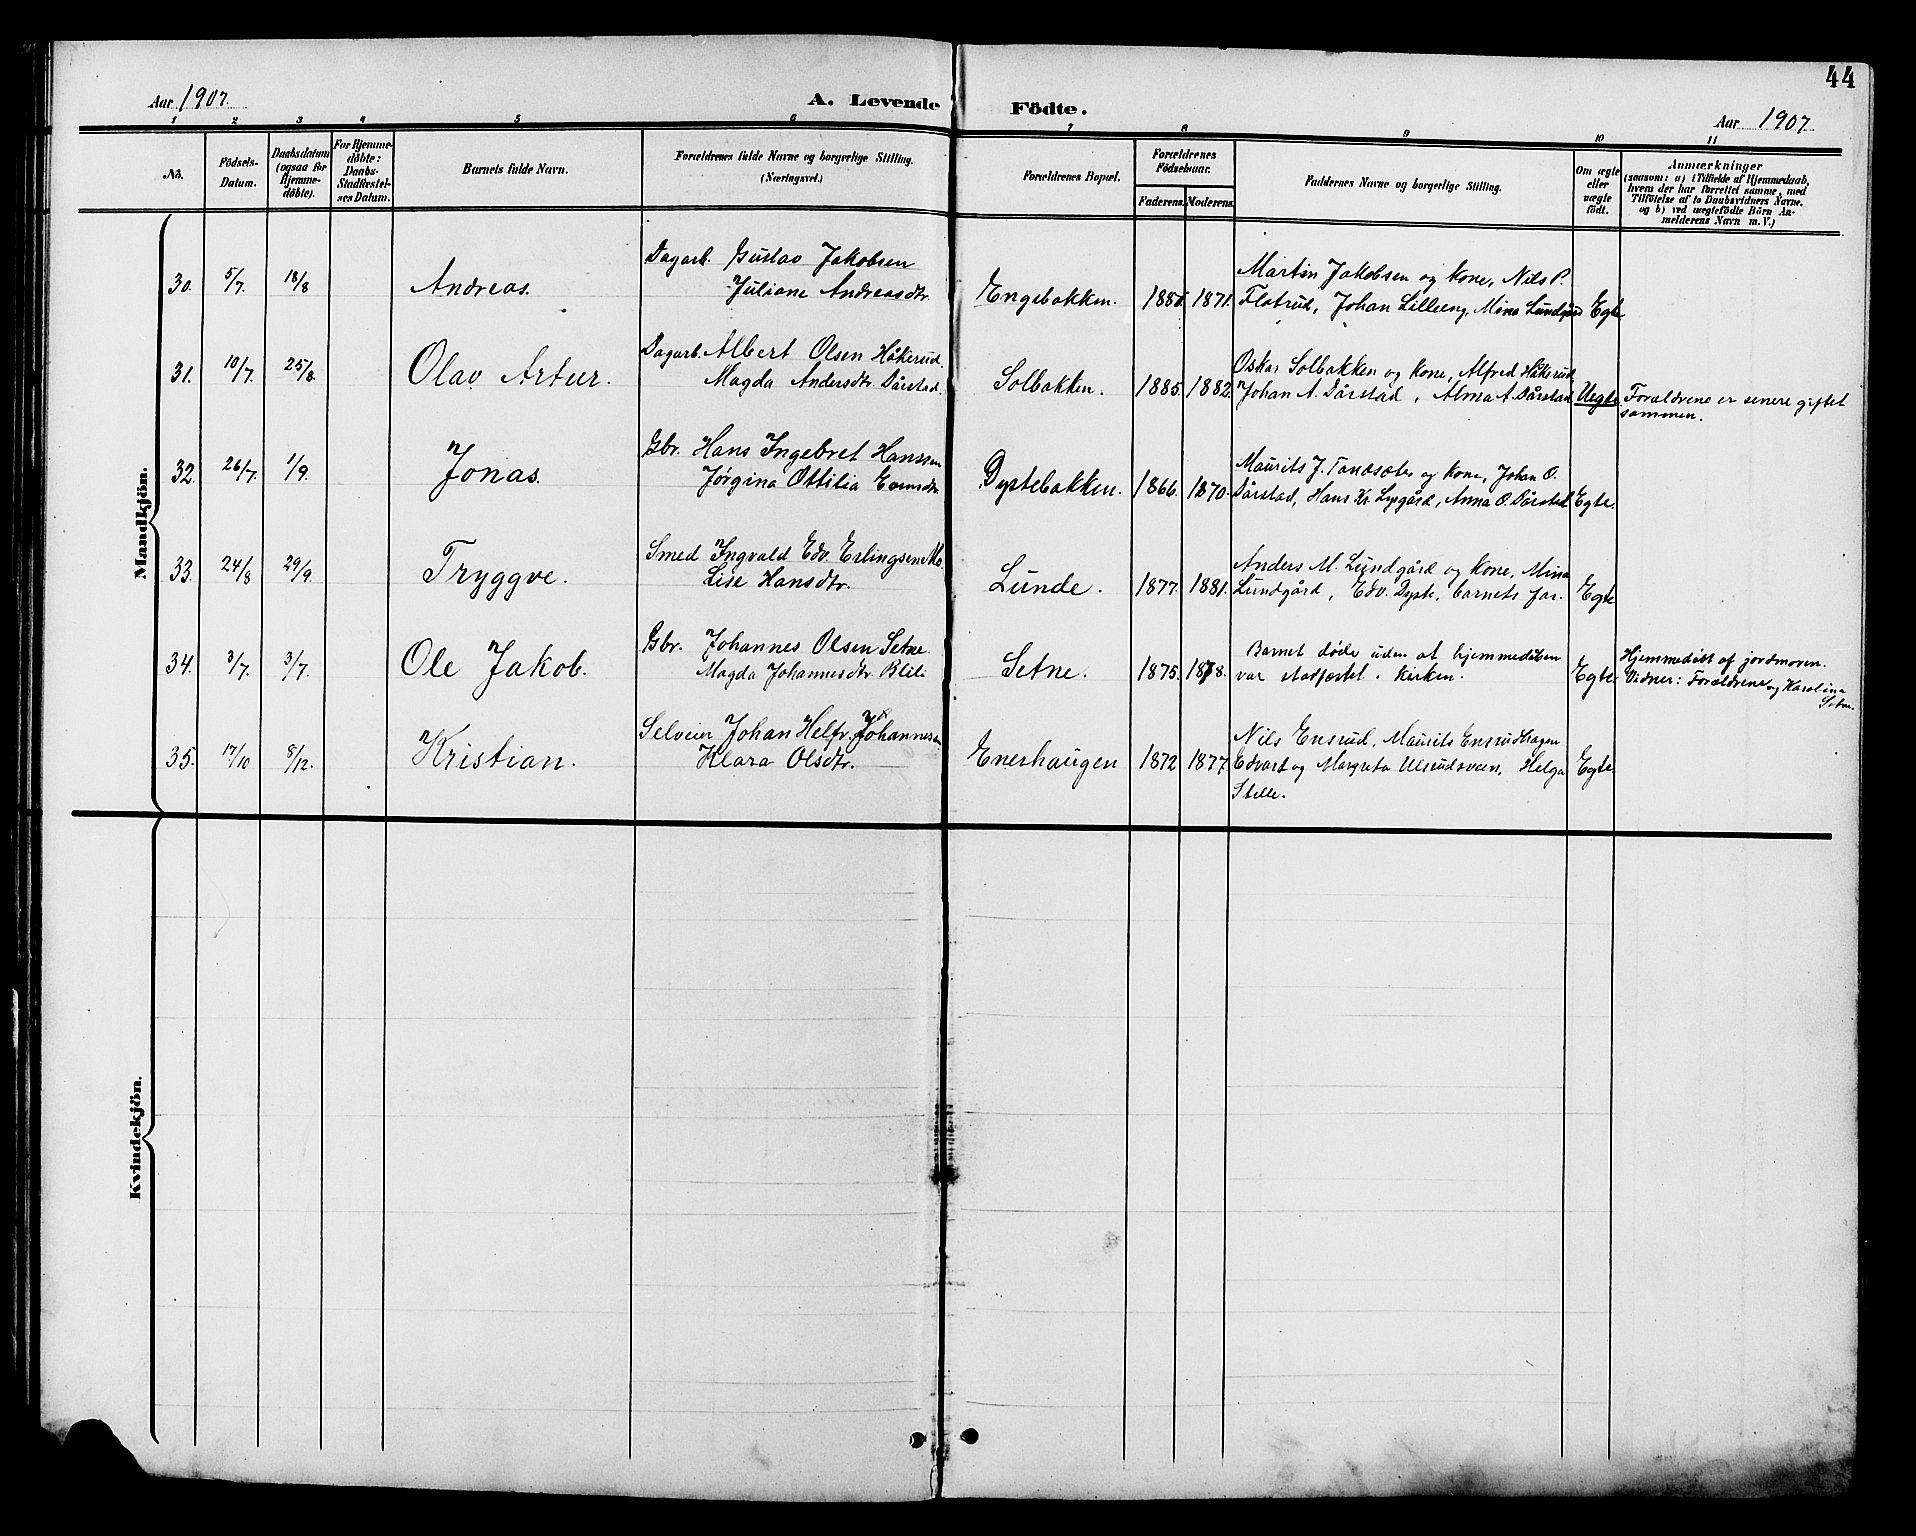 44
Aar 1907.
A. Levende Födte.
Aar 1907
1 2 3 4 5 6 7 8 9 10 11
No.
Födsels-Datum.
Daabsdatum (ogsaa for Hjemme-döbte).
For Hjemme-döbte: Daabs-Stadfæstel-ses Datum.
Barnets fulde Navn.
Forældrenes fulde Navne og borgerlige Stilling. (Næringsvei.)
Forældrenes Bopæl.
Forældrenes Födselsaar.
Faderens. Moderens.
Faddernes Navne og borgerlige Stilling.
Om ægte eller uægte födt.
Anmærkninger
(saasom: a) i Tilfælde af Hjemmedaab,
hvem der har forrettet samme, med
Tilföielse af to Daabsvidners Navne.
og b) ved uægtefödte Börn An-
melderens Navn m.V.)
Mandkjön.
30. 5/7. 18/8 Andreas. Dagarb. Gustav Jakobsen
Juliane Andreasdtr. Engebakken. 1871. Martin Jakobsen og kone, Nils P.
Flatrud, Johan Lilleeng, Mina Egte
31. 10/7. 25/8. Olav Artur. Dagarb. Albert Olsen Håkerud.
Magda Andersdtr. Dårstad. Solbakken. 1885. 1882. Oskar Solbakken og kone, Alfred Håkerud,
Johan A. Dårstad, Alma A. Dårstad Uegte. Forældrene er senere giftet
sammen.
32. 26/7. 1/9. Jonas. Gbr. Hans Ingebret Hanssen
Jørgina Ottilia Dystebakken. 1866. 1870. Maurits J. og kone, Johan O.
Dårstad, Hans Kr. Lysgård, Anna O. Dårstad Egte.
33. 24/8 29/9. Tryggve. Smed Ingvald Edv. Erlingsen Mo.
Lise Hansdtr. Lunde. 1877. 1881. Anders M. Lundgård og kone, Mina
Lundgård, Edv. Dyste, barnets far. Egte
34. 3/7. 3/7. Ole Jakob. Gbr. Johannes Olsen Setne.
Magda Johannesdtr. Blili Setne. 1875. 1878. Barnet døde uden at hjemmedåben
var stadfæstet i kirken. Egte. Hjemmedøbt af jordmoren.
Vidner: Forældrene og Karoline
Setne.
35. 17/10 8/12. Kristian. Selveier Johan Helfr. Johannesen
Klara Olsdtr. Eneshaugen 1872 1877. Nils Ensrud, Maurits Ensrudhagen
Edvart og Margreta Ulsrudsveen, Helga Egte.
Stille.
Kvindekjön.